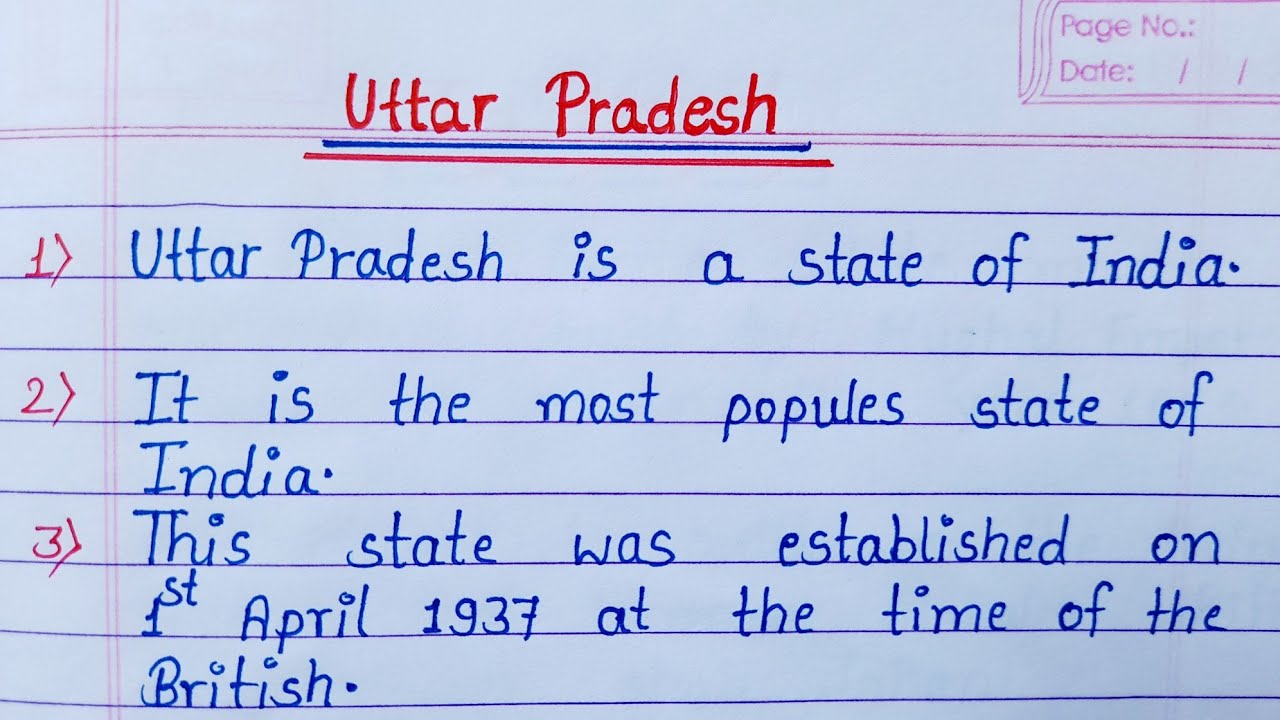 Page No.:
Date: / /
Uttar Pradesh
1) Uttar Pradesh is a state of India.
2) It is the most popules state of
India.
3) This state was established on
1st April 1937 at the time of the
British.